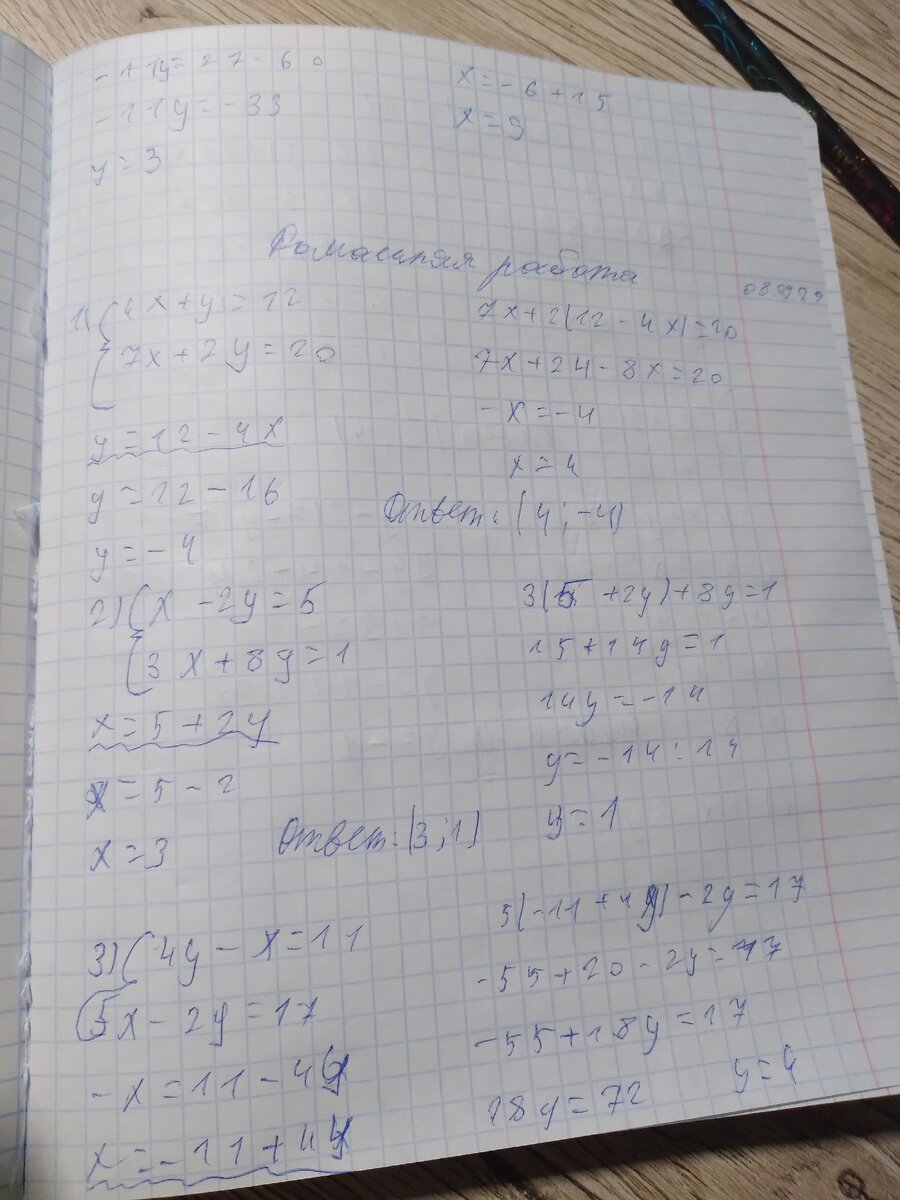 -11y=27-60
-11y=-33
y=3
x=-6+15
x=9
Домашняя работа
1) 4x+y=12
7x+2y=20
y=12-4x
y=12-16
y=-4
7x+2(12-4x)=20
7x+24-8x=20
-x=-4
x=4
Ответ: (4;-4)
2) x-2y=5
3x+8y=1
x=5+2y
x=5-2
x=3
3(5+2y)+8y=1
15+14y=1
14y=-14
y=-14:14
y=1
Ответ: (3;1)
3) 4y-x=11
5x-2y=17
-x=11-4y
x=-11+4y
5(-11+4y)-2y=17
-55+20-2y=17
-55+18y=17
18y=72
y=4